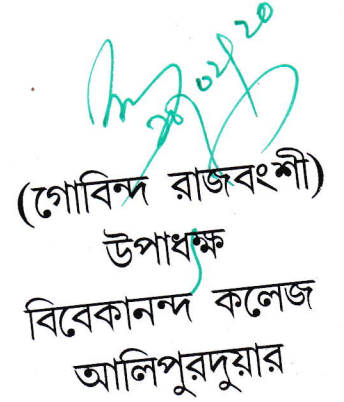 ২৪/০২/২০
(গোবিন্দ রাজবংশী)
উপাধক্ষ
বিবেকানন্দ কলেজ
আলিপুরদুয়ার